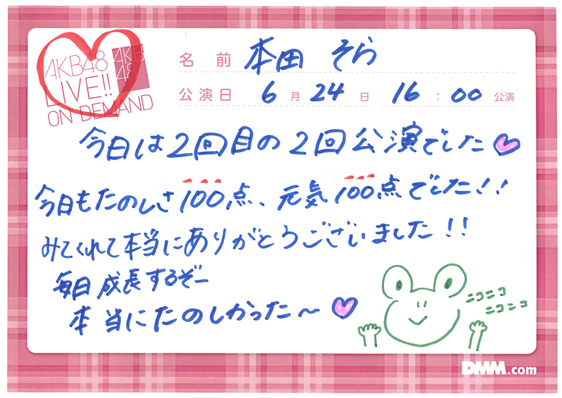 AKB48
LIVE!!
ON DEMAND
AKB
48
名前 本田 そら
公演日 6月24日 16:00公演
今日は2回目の2回公演でした♡
今日もたのしさ100点、元気100点でした!!
みてくれて本当にありがとうございました!!
毎日成長するぞー
本当にたのしかった〜♡
ニコニコ
ニコニコ
DMM.com